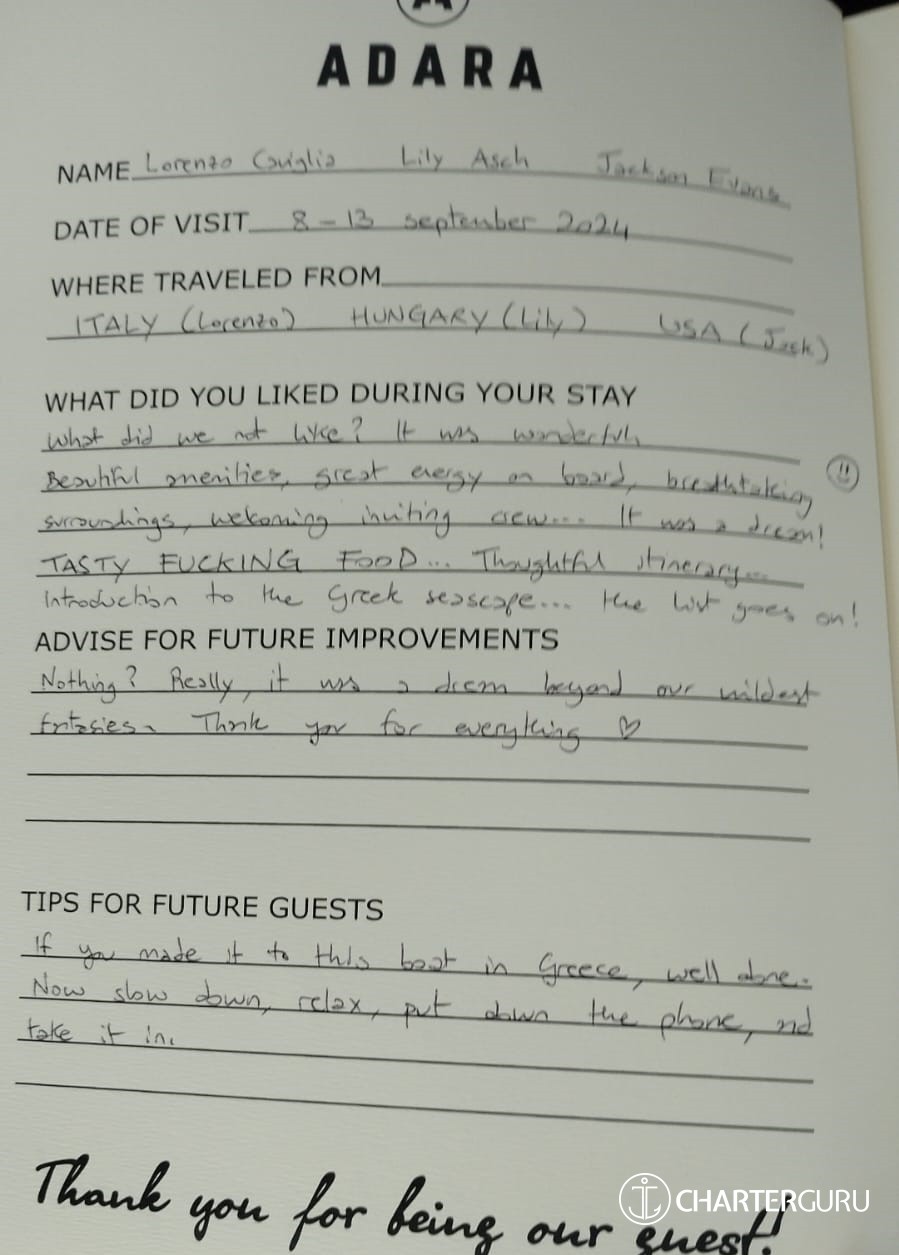 ADARA
NAME Lorenzo Caviglia Lily Asch Jackson Evans
DATE OF VISIT 8-13 september 2024
WHERE TRAVELED FROM
ITALY (Lorenzo) HUNGARY (Lily) USA (Jack)
WHAT DID YOU LIKED DURING YOUR STAY
What did we not like? It was wonderful,
Beautiful amenities, great energy on board, breathtaking
surroundings, welcoming inviting crew... It was a dream!
TASTY FUCKING FOOD... Thoughtful itinerary...
Introduction to the Greek seascape... the list goes on!
ADVISE FOR FUTURE IMPROVEMENTS
Nothing? Really, it was a dream beyond our wildest
fntasies. Thank you for everything ♡
TIPS FOR FUTURE GUESTS
If you made it to this boat in Greece, well done.
Now slow down, relax, put down the phone, nd
take it in.
Thank you for being our guest!
CHARTERGURU